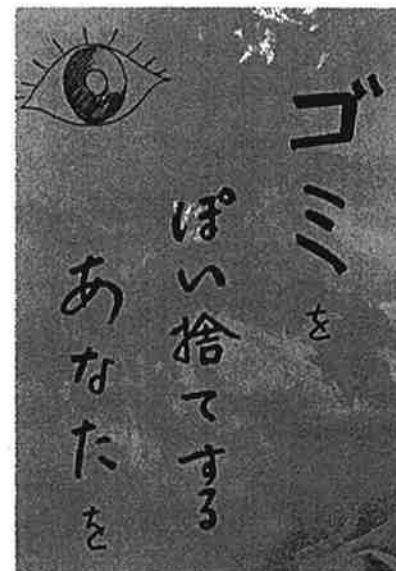 ゴミを
ぽい捨てする
あなたを